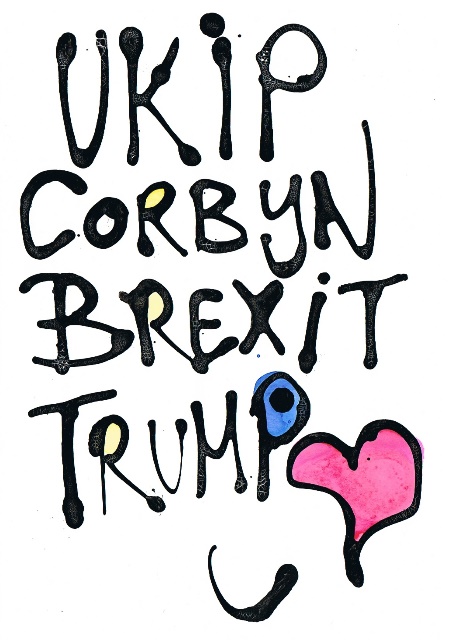 UKiP
CORByN
BREXiT
TRUMP